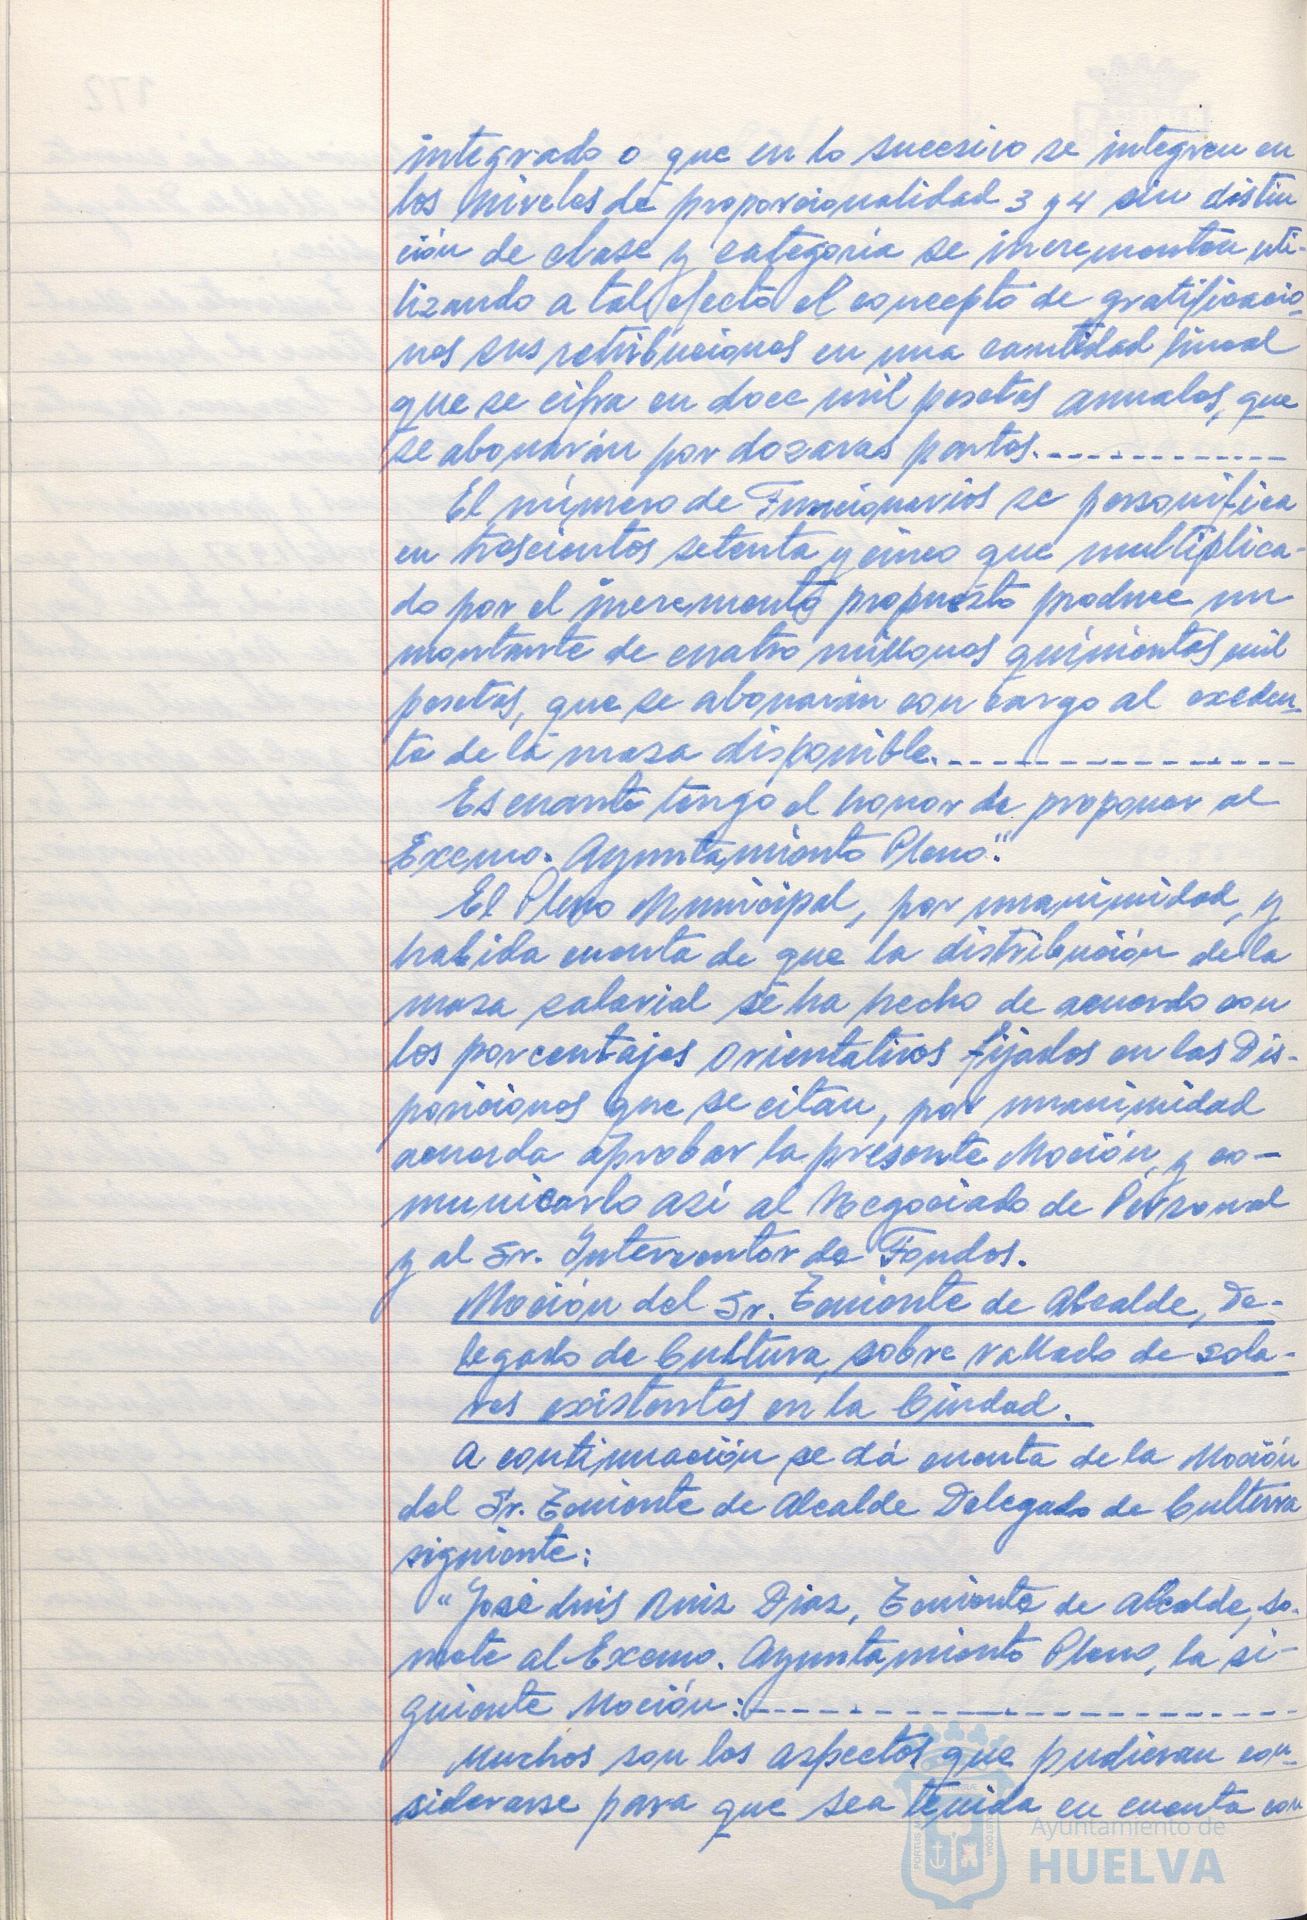 integrado o que en lo sucesivo se integren en
los niveles de proporcionalidad 3 y 4 sin distin
ción de clase y categoría se incrementan uti-
lizando a tal efecto el concepto de gratificacio-
nes sus retribuciones en una cantidad lineal
que se cifra en doce mil pesetas anuales, que
se abonarán por dozavas partes.-------------
El número de Funcionarios se personifica
en trescientos setenta y cinco que multiplica-
do por el incremento propuesto produce un
montante de cuatro millones quinientas mil
pesetas, que se abonarán con cargo al exceden-
te de la masa disponible.----------------
Es cuanto tengo el honor de proponer al
Excmo. Ayuntamiento Pleno."
El Pleno Municipal, por unanimidad, y
habida cuenta de que la distribución de la
masa salarial se ha hecho de acuerdo con
los porcentajes orientativos fijados en las Dis-
posiciones que se citan, por unanimidad
acuerda aprobar la presente Moción, y co-
municarlo así al Negociado de Personal
y al Sr. Interventor de Fondos.
Moción del Sr. Teniente de Alcalde, De-
legado de Cultura, sobre vallado de sola-
res existentes en la Ciudad.
A continuación se dá cuenta de la Moción
del Sr. Teniente de Alcalde Delegado de Cultura
siguiente:
"José Luis Ruiz Diaz, Teniente de Alcalde, so-
mete al Excmo. Ayuntamiento Pleno, la si-
guiente Moción:-------------------------
Muchos son los aspectos que pudieran con-
siderarse para que sea tenida en cuenta con
Ayuntamiento de
HUELVA